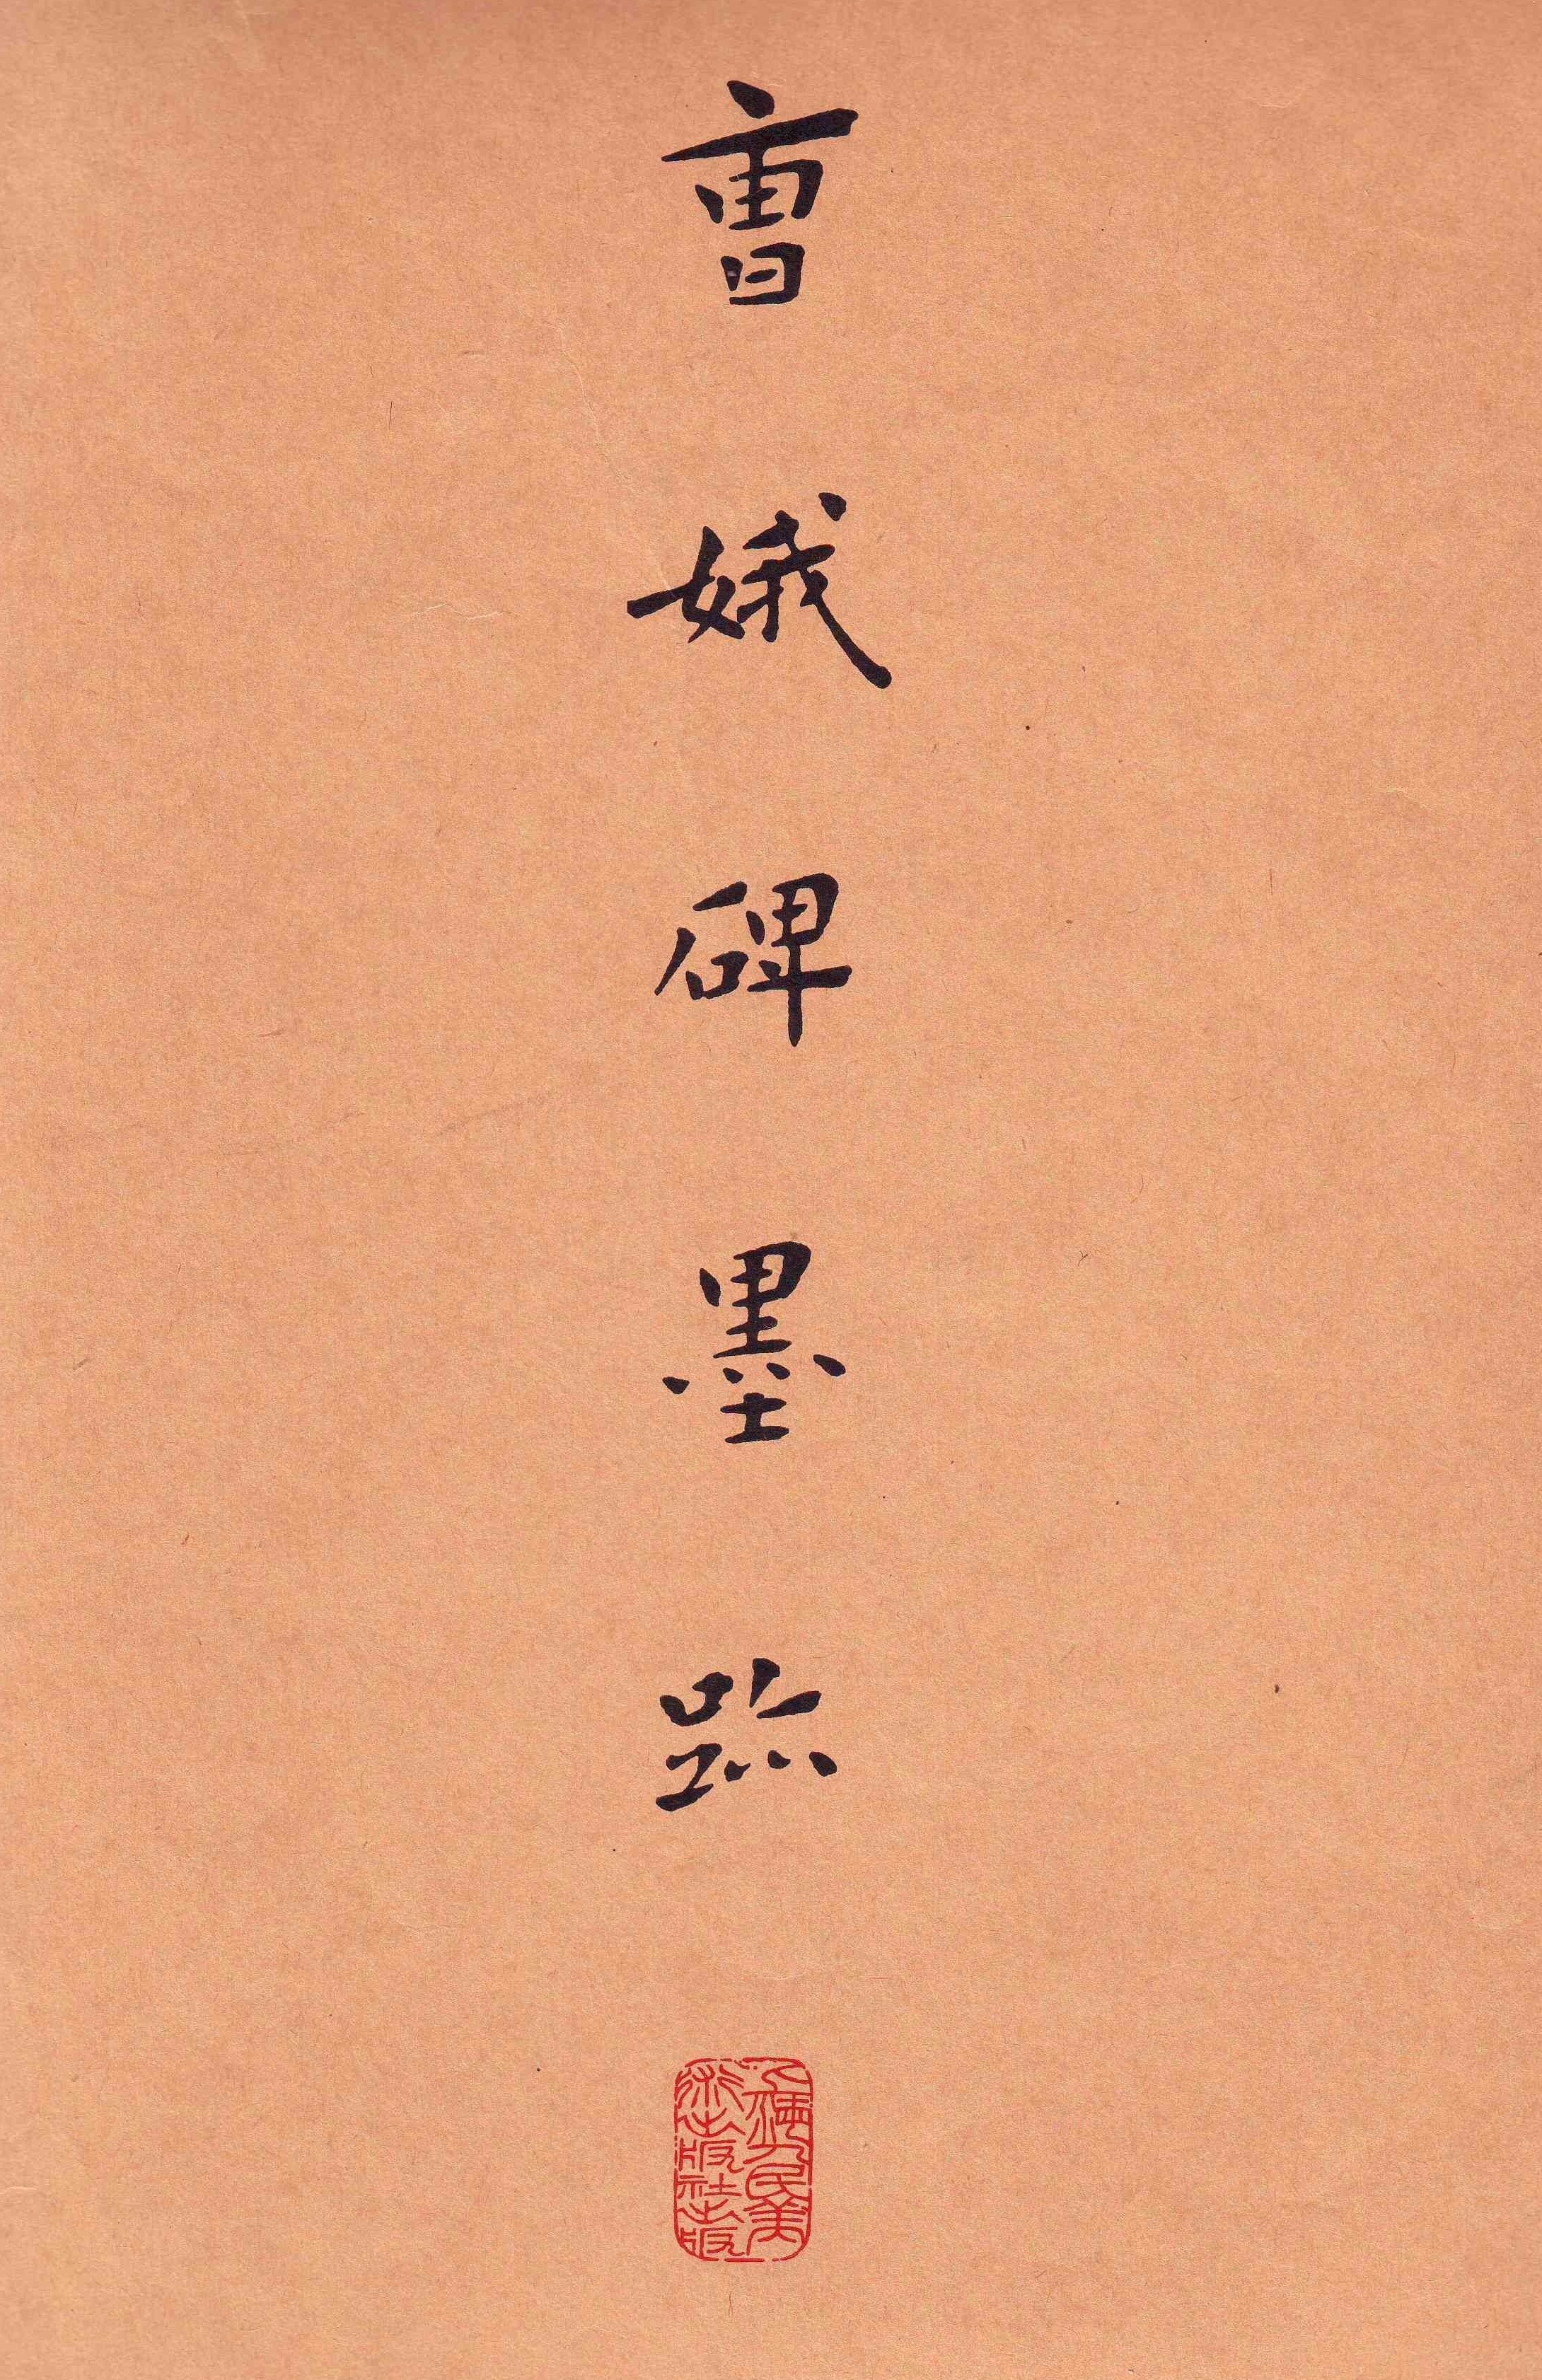 曹娥碑墨跡
上海人民美
術出版社出版